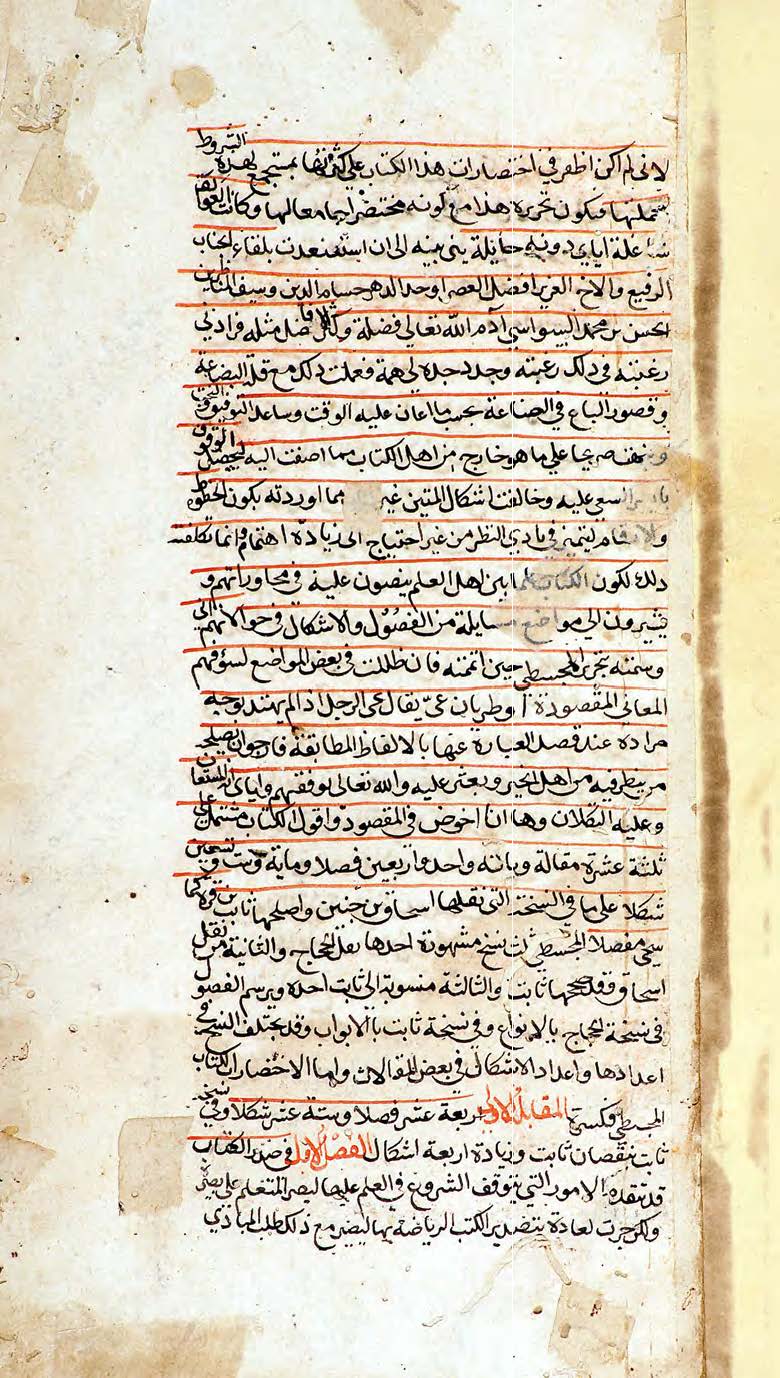 لانى لم اكن اظفر فى اختصارات هذا الكتاب على كثرتها بمستجمع لهذه الشروط
بجملتها فيكون تحريره هذا مع كونه مختصرا جامعا لها وكانت العوائق
شاغلة اياى دونه حائلة بينى وبينه الى ان استسعدت بلقاء الجناب
الرفيع والاخ العزيز افضل العصر اوحد الدهر حسام الدين وسيف المناظرين
الحسن بن محمد السيواسى ادام الله تعالى فضيلة وكثر فى الافاضل مثله فزادنى
رغبته فى ذلك رغبته وجدد جده لى همة فعملت ذلك مع قلة البضاعة
وقصور الباع فى الصناعة بحسب ما اعان عليه الوقت وساعد التوفيق
على ما هو خارج من اهل الكتاب مما اضفت اليه ليحصل الوقوف
السعى عليه وخالفت اشكال المتين غير مما اوردته بكون الخطوط
والارقام ليتميز فى بادى النظر من غير احتياج الى زيادة اهتمام وانما تكلفت
ذلك لكون الكتاب علما بين اهل العلم ينصون عليه فى محاوراتهم و
يشيرون الى مواضع مسايلة من الفصول والاشكال فى حوالاتهم الى
وسمته بتحرير المجسطى حين اتممته فان ظللت فى بعض المواضع لسؤ فهم
المعانى المقصودة او طريان عى يقال عى الرجل اذا لم يهتد بوجه
مراده عند قصد العبارة عنها بالالفاظ المطابقة فارجو ان يصلحه
من ينظر فيه من اهل الخير ويعثر عليه والله تعالى يوفقهم واياى انه المستعان
وعليه التكلان وها انا اخوض فى المقصود واقول الكتاب مشتمل على
ثلثة عشرة مقالة ومائه واحد واربعين فصلا ومايه وست وتسعين
شكلا على ما فى النسخة التى نقلها اسحاق بن حنين واصلحها ثابت بن قرة كما
سمى مفصلا المجسطى ثلث نسخ مشهورة احدها نقل الحجاج والثانية من نقل
اسحاق وقد صححها ثابت والثالثة منسوبة الى ثابت احده ويرسم الفصول
فى نسخة الحجاج بالانواع وفى نسخة ثابت بالابواب وقد يختلف النسخ فى
اعدادها واعداد الاشكال فى بعض المقالات واما الاختصارات لكتاب
المجسطى فكثيرة المقابلة الاولى اربعة عشر فصلا وستة عشر شكلا وفى نسخة
ثابت بنقصان ثابت وزيادة اربعة اشكال الفصل الاول فى صدر الكتاب
قد تتقدم الامور التى يتوقف الشروع فى العلم عليها ليصير المتعلم على بصيرة
ولكن جرت لعادة بتصدير الكتب الرياضة بها ليصير مع ذلك طلب المبادى